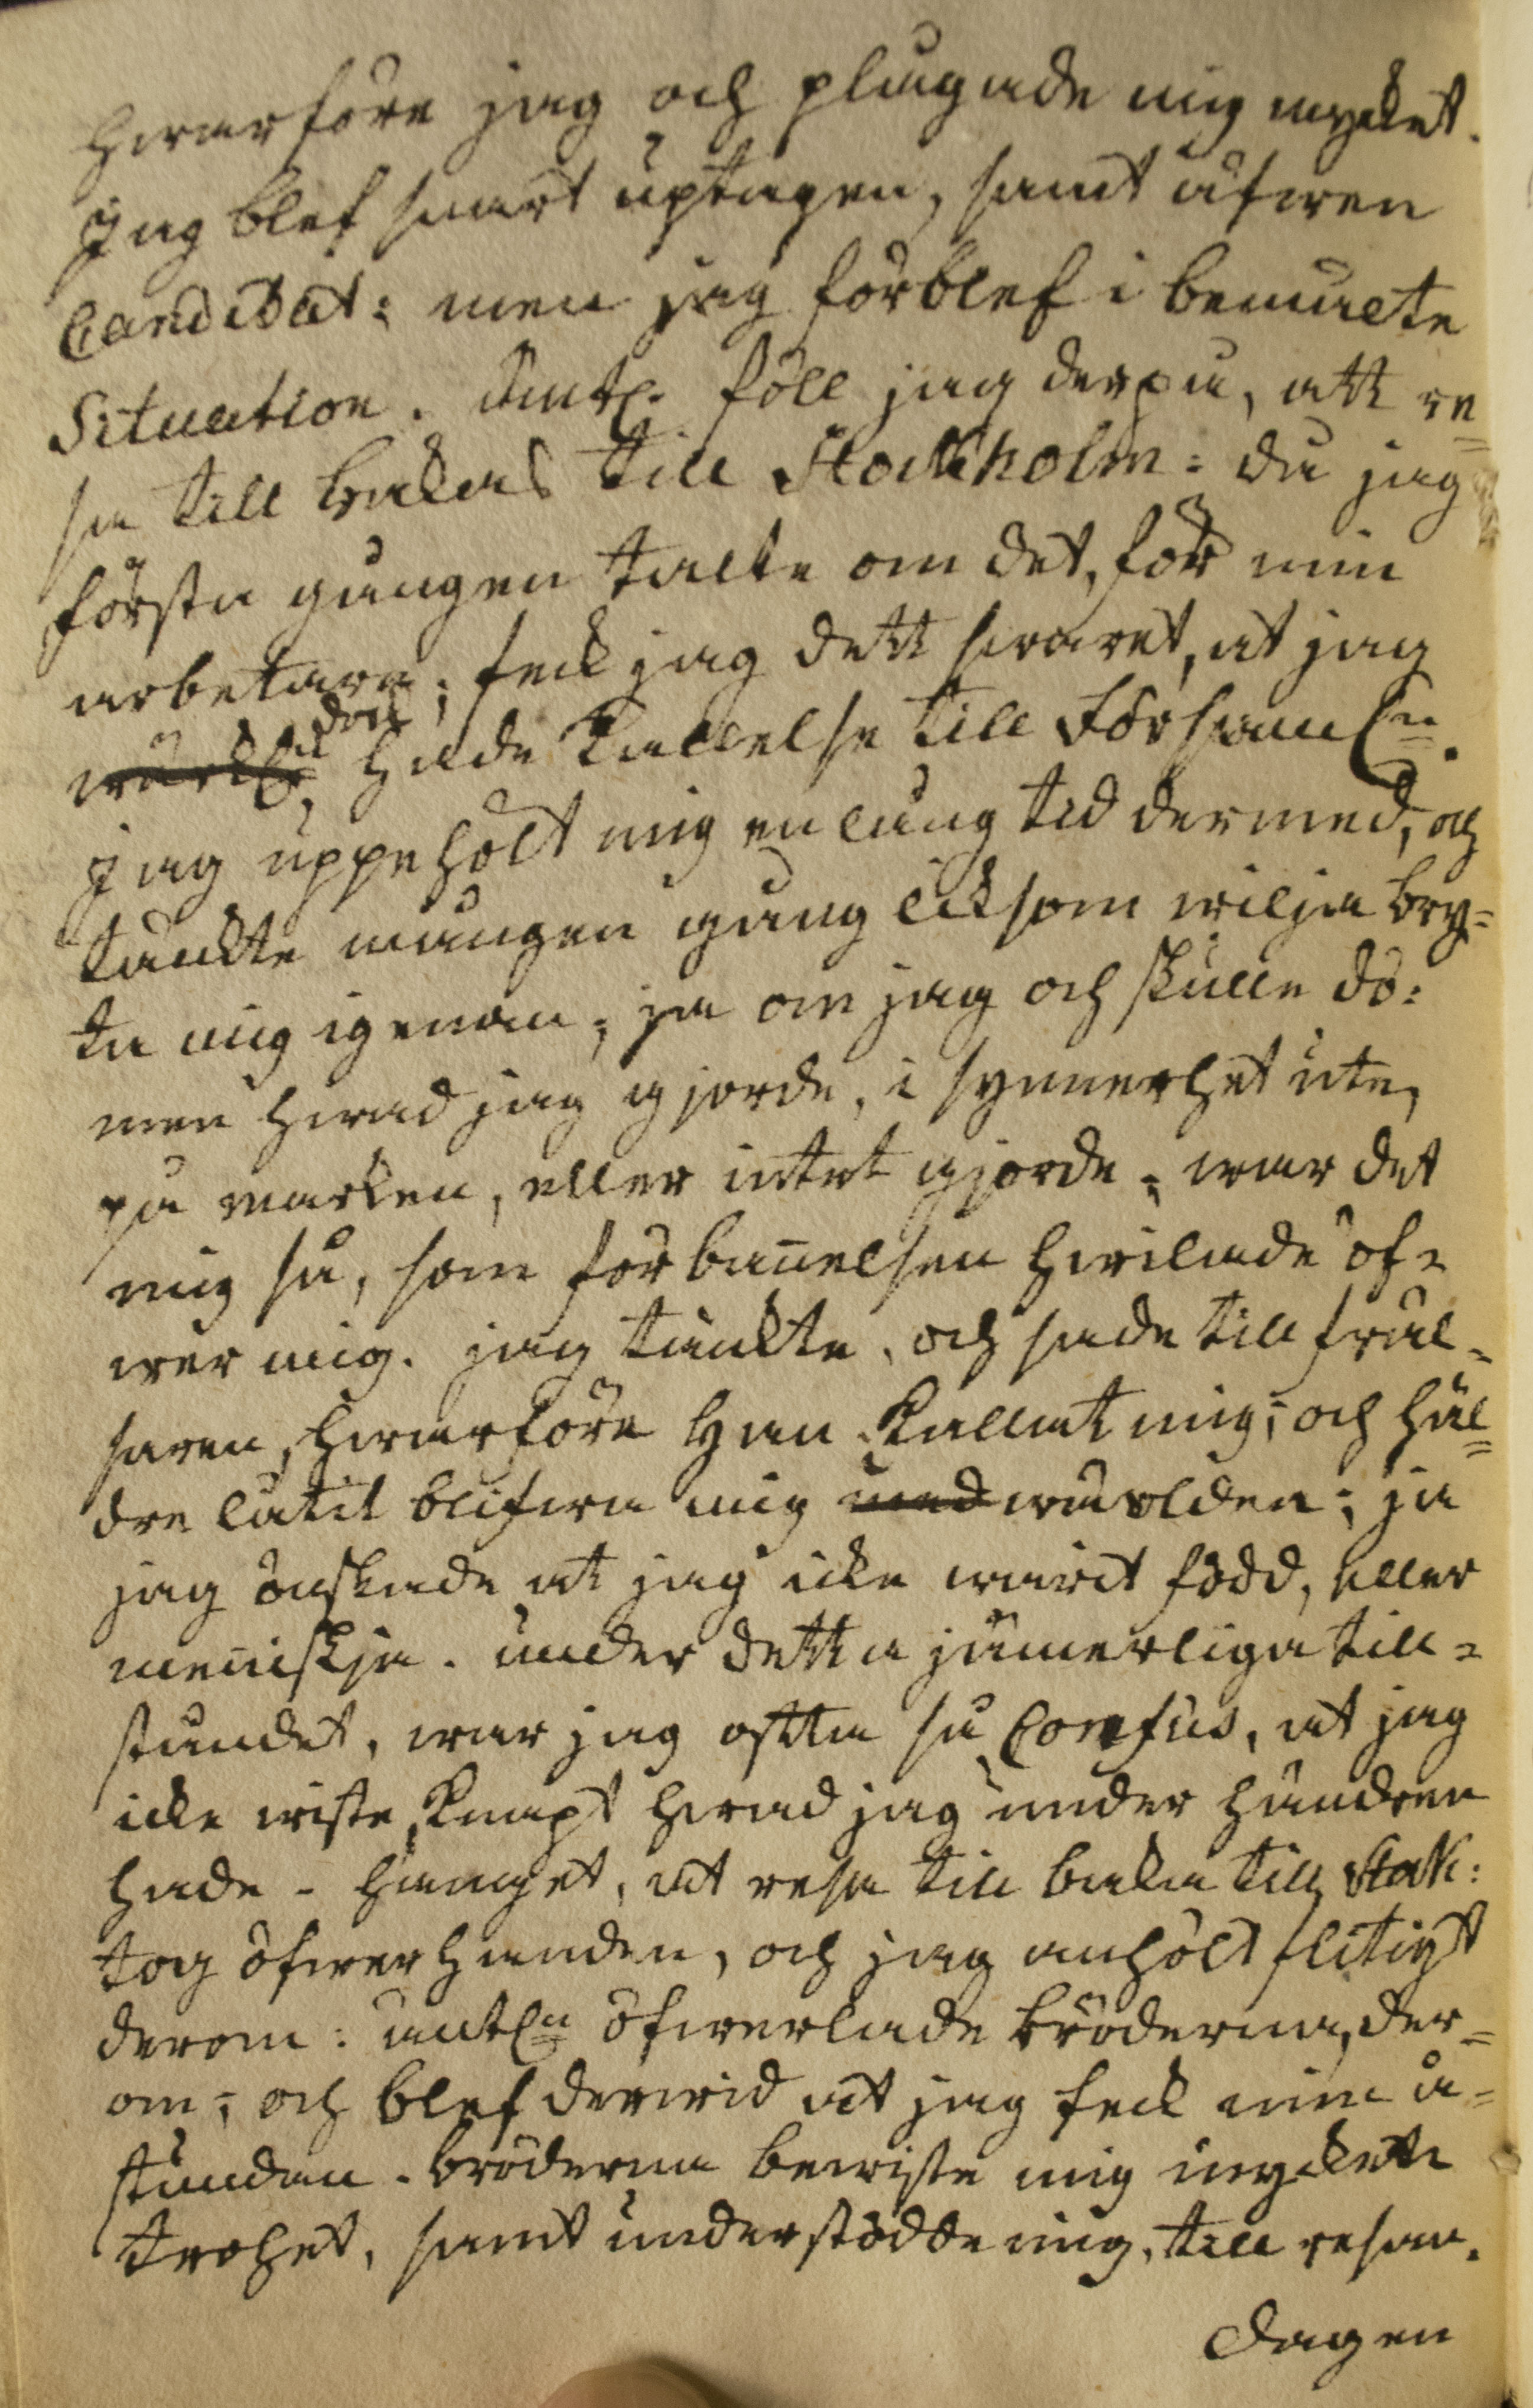 hwarföre jag och plågade mig mycket.
Jag blef snart uptagen, samt äfwen
Candidat: men jag förblef i benämte
Situation. Äntl. föll jag derpå, att re=
sa till bakas till Stockholm: då jag
första gången talte om det, för min
arbetare; feck jag dett swaret, at jag
wärkl. doch hade kallelse till Församl:n.
Jag uppehölt mig en lång tid dermed, och
tänckte mången gång lick som wilja bry=
ta mig igenom; ja om jag och skulle dö:
men hwad jag gjorde, i synnerhet ute,
på marken, eller intet gjorde; war det
mig så, som förbanelsen hwilade öf=
wer mig. jag tänckte, och sade till fräl=
saren, hwarföre Han kallat mig; och häl=
dre låtit blifwa mig med wärlden; ja
jag önskade at jag icke warit född, eller
meniskja. under detta jämerliga till=
ståndet, war jag offta så Confus, at jag
icke wiste knapt hwad jag under händren
hade. Hänget, at resa till baka till Stok:
tog öfwerhanden, och jag anhölt flitigt
derom: äntl:n öfwerlade bröderna, der=
om; och blef derwid at jag feck min å=
stundan. bröderna bewiste mig myckett
trohet, samt understödde mig, till resan.
Dagen